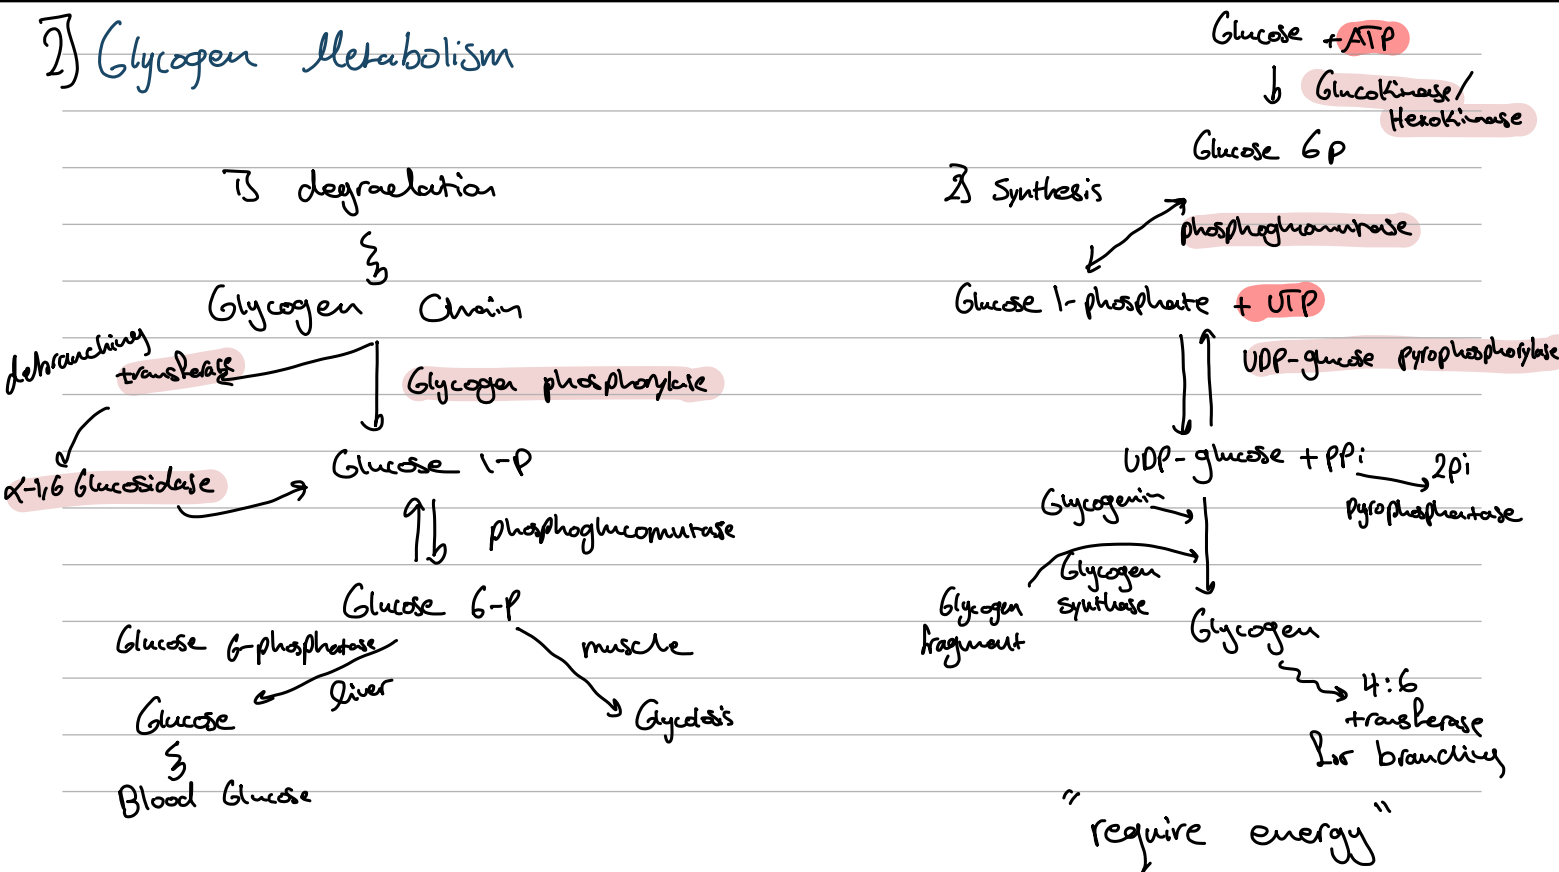 2] Glycogen Metabolism
1) degradation
Glycogen Chain
debranching
transferase
Glycogen phosphorylase
α-1,6 Glucosidase
Glucose 1-P
phosphoglucomutase
Glucose 6-P
Glucose 6-phosphatase
liver
muscle
Glucose
Glycolosis
Blood Glucose
Glucose + ATP
Glucokinase/
Hexokinase
Glucose 6p
2) Synthesis
phosphoglucomutase
Glucose 1-phosphate + UTP
UDP-glucose pyrophosphorylase
UDP-glucose + PPi
2Pi
pyrophosphatase
Glycogenin
Glycogen
synthase
Glycogen
fragment
Glycogen
4:6
transferase
for branching
"require energy"